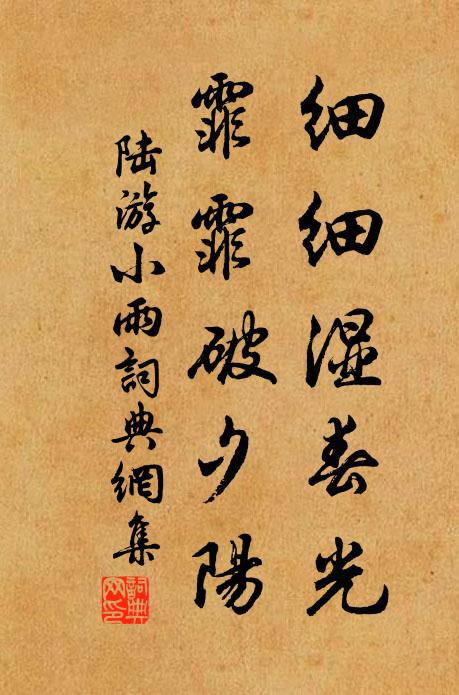 细细湿春光
霏霏破夕陽
陆游小雨詞典網集
詞典网印